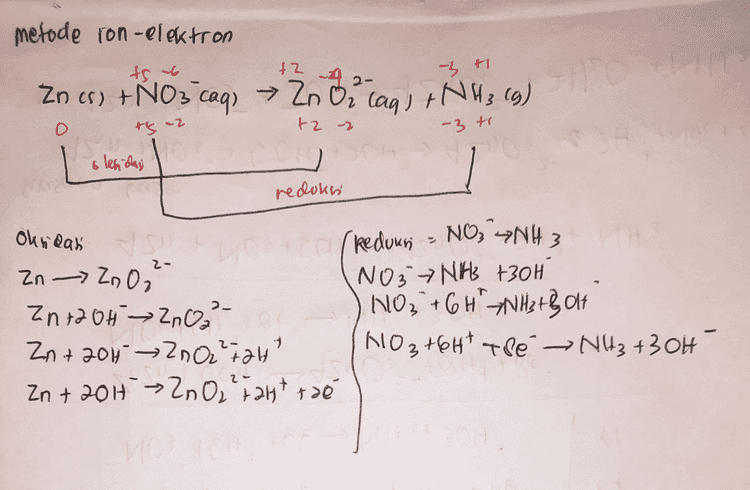 metode ion-elektron
+5 -6 +2 -4 -3 +1
Zn (s) + NO3⁻ (aq) → ZnO2²⁻ (aq) + NH3 (g)
0 +5 -2 +2 -2 -3 +1
oksidasi
reduksi
Oksidasi
Zn → ZnO2²⁻
Zn + 2OH⁻ → ZnO2²⁻
Zn + 2OH⁻ → ZnO2²⁻ + 2H⁺
Zn + 2OH⁻ → ZnO2²⁻ + 2H⁺ + 2e⁻
Reduksi = NO3⁻ → NH3
NO3⁻ → NH3 + 3OH⁻
NO3⁻ + 6H⁺ → NH3 + 3OH⁻
NO3 + 6H⁺ + 8e⁻ → NH3 + 3OH⁻